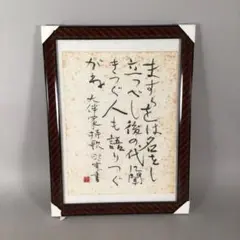 ますらをは名をし
立つべし後の代に聞
きつぐ人も語りつぐ
がね 大伴家持歌 書